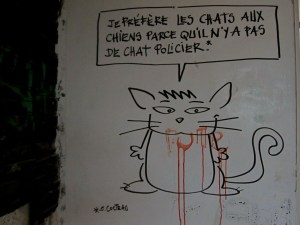 JE PRÉFÈRE LES CHATS AUX
CHIENS PARCE QU'IL N'Y A PAS
DE CHAT POLICIER.*